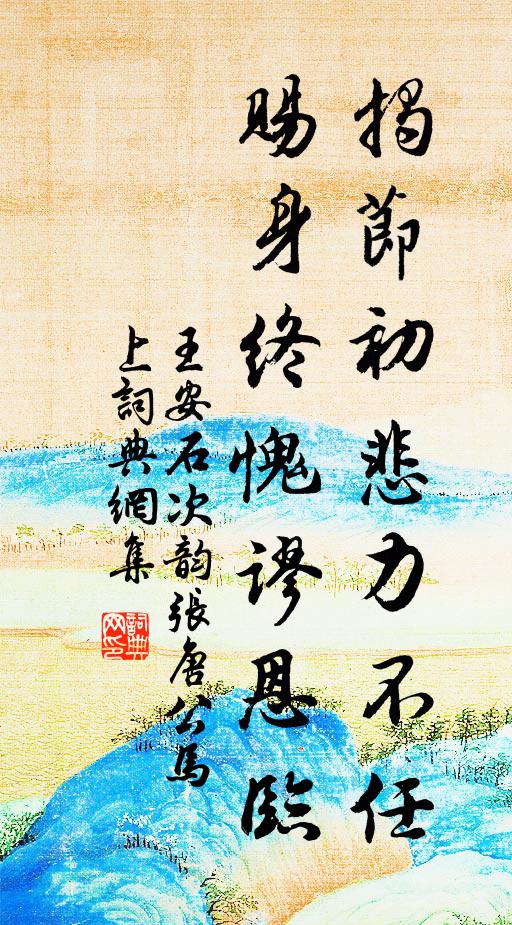 揭節初悲力不任
賜身終愧謬恩臨
王安石次韵張唐公馬
上詞典網集
詞典网印